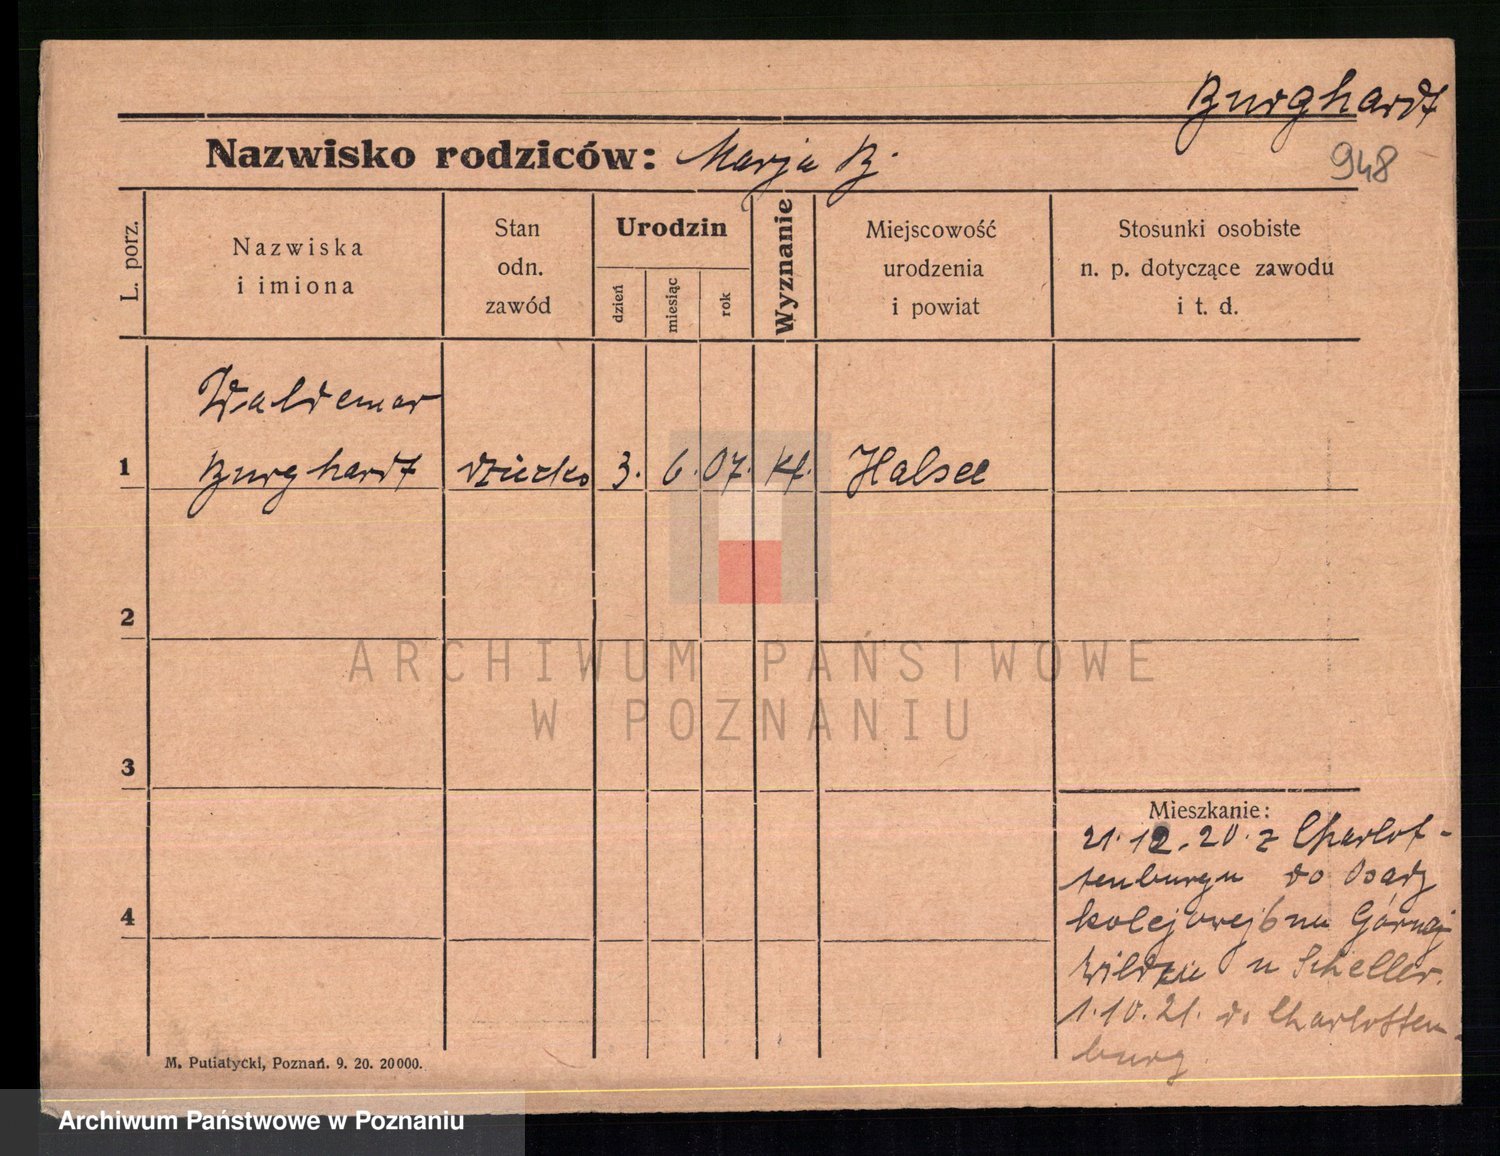 Burghardt
948
Nazwisko rodziców: Marja B.
L. porz.
Nazwiska
i imiona
Stan
odn.
zawód
Urodzin
dzień
miesiąc
rok
Wyznanie
Miejscowość
urodzenia
i powiat
Stosunki osobiste
n. p. dotyczące zawodu
i t. d.
Waldemar
1 Burghardt dziecko 3. 6. 07. kt. Halsee
2
3
4
ARCHIWUM PAŃSTWOWE
W POZNANIU
Mieszkanie:
21.12.20. z Charlot-
tenburgu do Osady
kolejowej 6 na Górnej
Wildzie u Scheller.
1.10.21. do Charlotten-
burg
M. Putiatycki, Poznań. 9. 20. 20000.
Archiwum Państwowe w Poznaniu